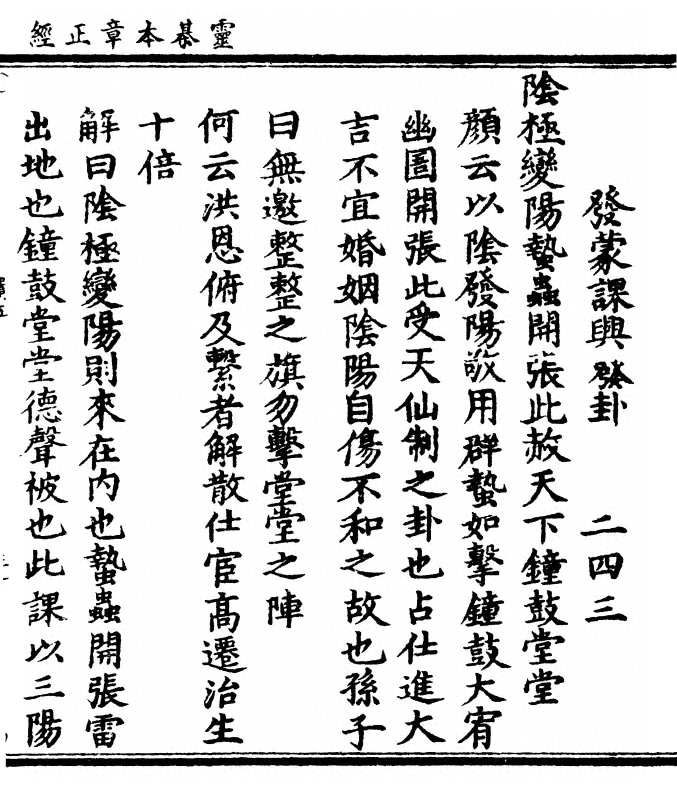 靈棊本章正經
發蒙課興 發卦 二四三
陰極變陽蟄蟲開張此赦天下鐘鼓堂堂
顏云以陰發陽故用群蟄如擊鐘鼓大宥
幽圄開張此受天仙制之卦也占仕進大
吉不宜婚姻陰陽自傷不和之故也孫子
曰無邀整整之旗勿擊堂堂之陣
何云洪恩俯及繫者解散仕宦高遷治生
十倍
解曰陰極變陽則來在内也蟄蟲開張雷
出地也鐘鼓堂堂德聲被也此課以三陽